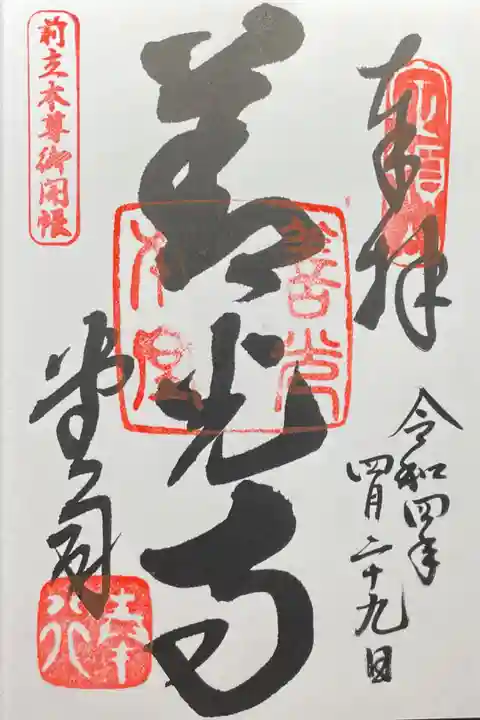 奉拝
令和四年
四月二十九日
善光寺
前立本尊御開帳
堂司